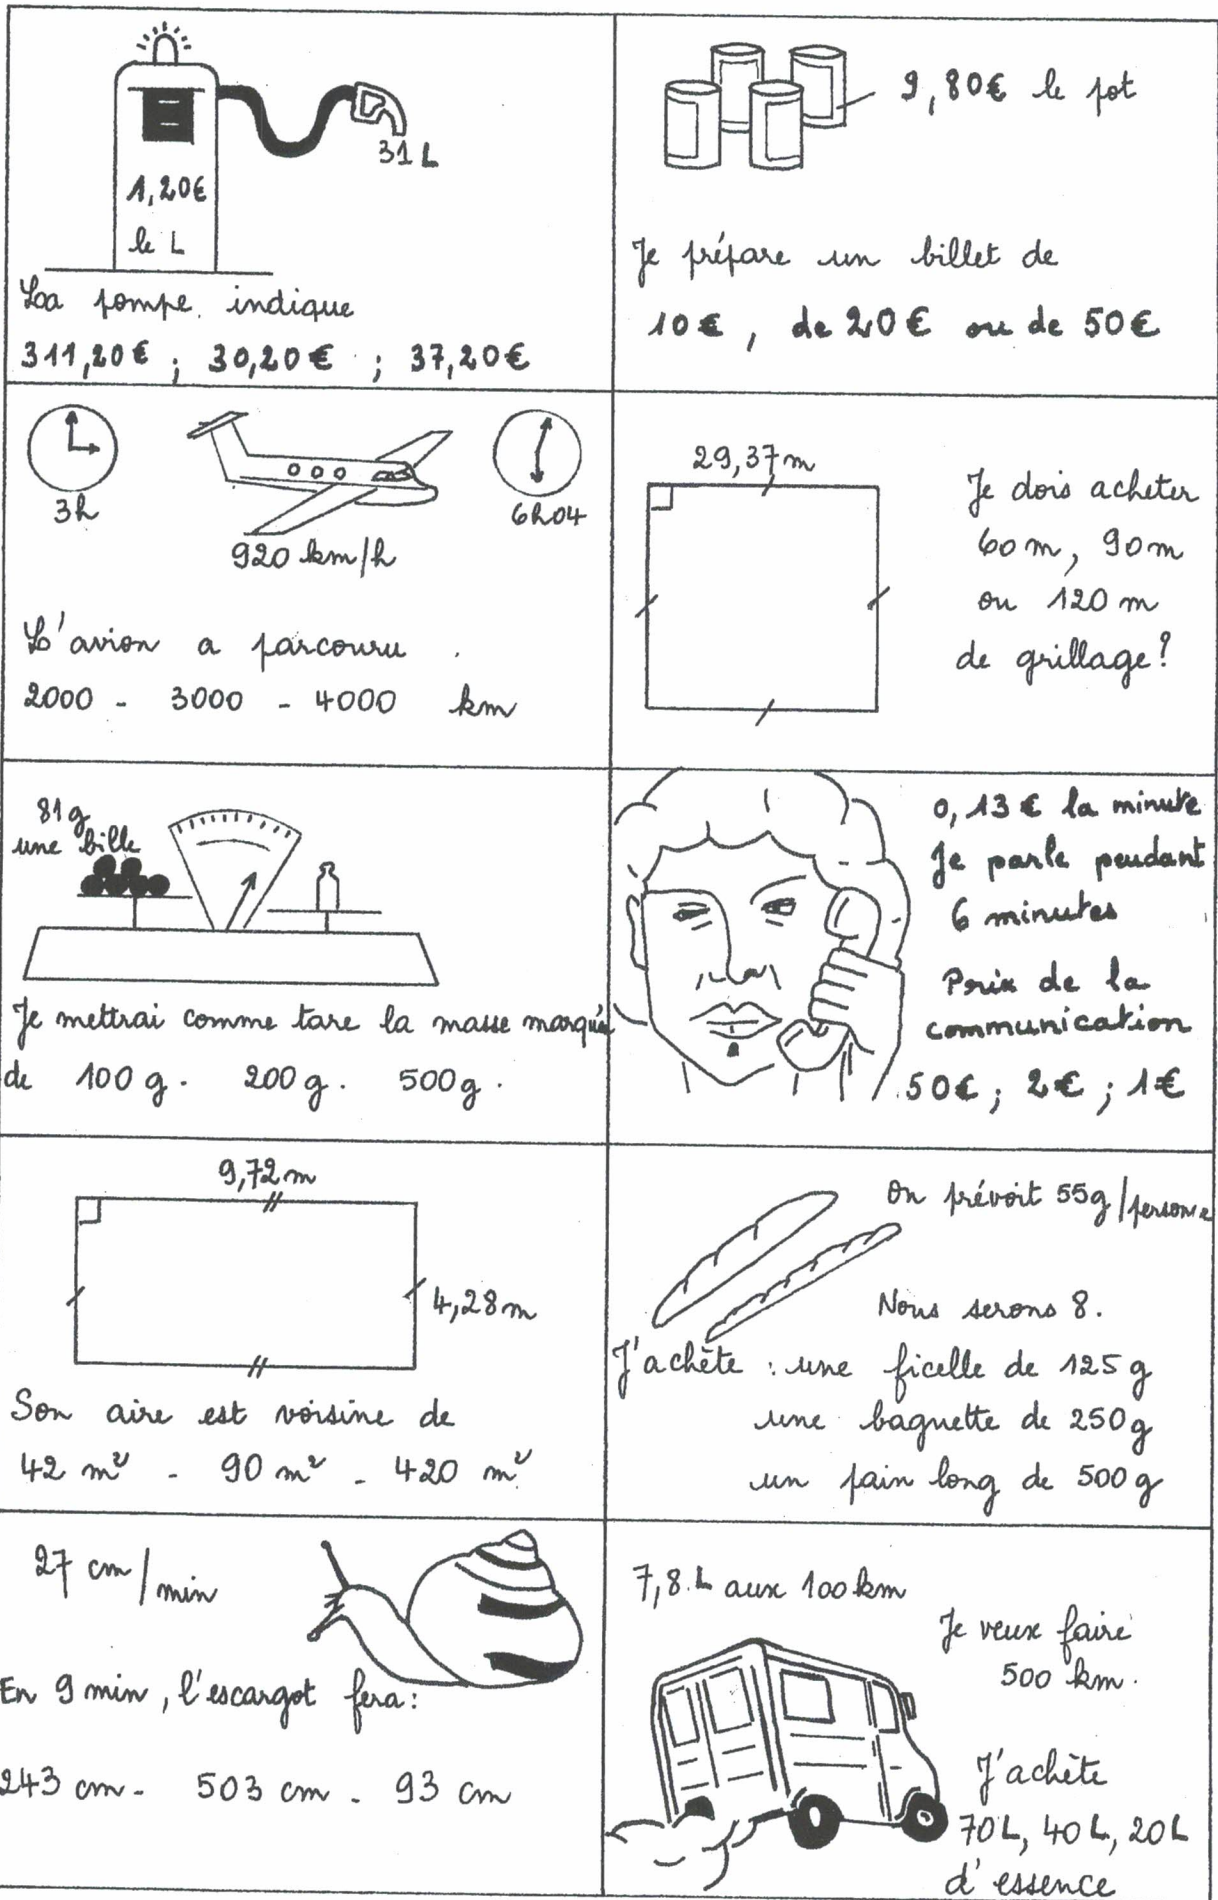 31 L
1,20€
le L
La pompe indique
311,20€ ; 30,20€ ; 37,20€
9,80€ le pot
Je prépare un billet de
10€, de 20€ ou de 50€
3h
920 km/h
6h04
L'avion a parcouru
2000 - 3000 - 4000 km
29,37m
Je dois acheter
60m, 90m
ou 120 m
de grillage?
81g
une bille
Je mettrai comme tare la masse marquée
de 100g. 200g. 500g.
0,13€ la minute
Je parle pendant
6 minutes
Prix de la
communication
50€ ; 2€ ; 1€
9,72m
4,28m
Son aire est voisine de
42 m² - 90 m² - 420 m²
On prévoit 55g/personne
Nous serons 8.
J'achète : une ficelle de 125g
une baguette de 250g
un pain long de 500g
27 cm/min
En 9 min, l'escargot fera :
243 cm - 503 cm - 93 cm
7,8 L aux 100km
Je veux faire
500 km.
J'achète
70L, 40L, 20L
d'essence